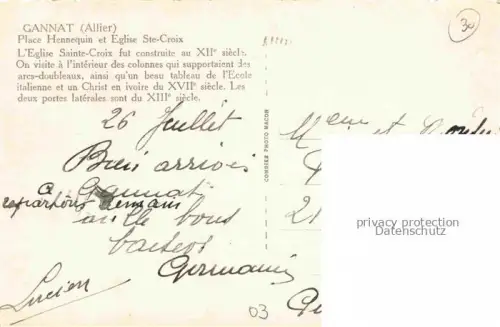 GANNAT (Allier)
Place Hennequin et Eglise Ste-Croix
L'Eglise Sainte-Croix fut construite au XIIe siècle.
On visite à l'intérieur des colonnes qui supportaient des
arcs-doubleaux, ainsi qu'un beau tableau de l'Ecole
italienne et un Christ en ivoire du XVIIe siècle. Les
deux portes latérales sont du XIIIe siècle.
26 Juillet
Bien arrivés
a Gannat
repartons demain
mille bons
baisers
Germaine
Lucien
COMBIER PHOTO MACON
30
et
21
privacy protection
Datenschutz
03